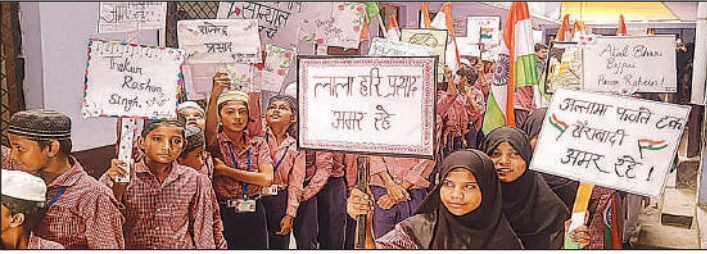 अमर रहे
Thakur
Roshan
Singh
राजेन्द्र
प्रसाद
लाला हरि प्रसाद
अमर रहे
Atal Bihari
Bajpai
Amar Rahein!
अल्लामा फजले हक
खैराबादी
अमर रहे!